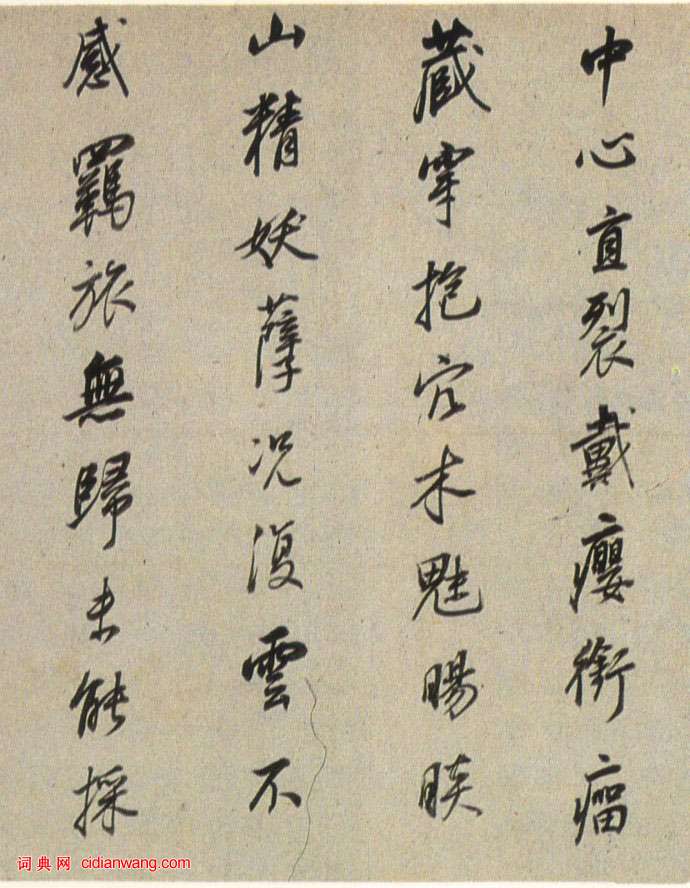 中心直裂戴癭銜瘤
藏穿抱穴木魅賜睒
山精妖孽况復雲不
感羈旅無歸未能採
词典网 cidianwang.com